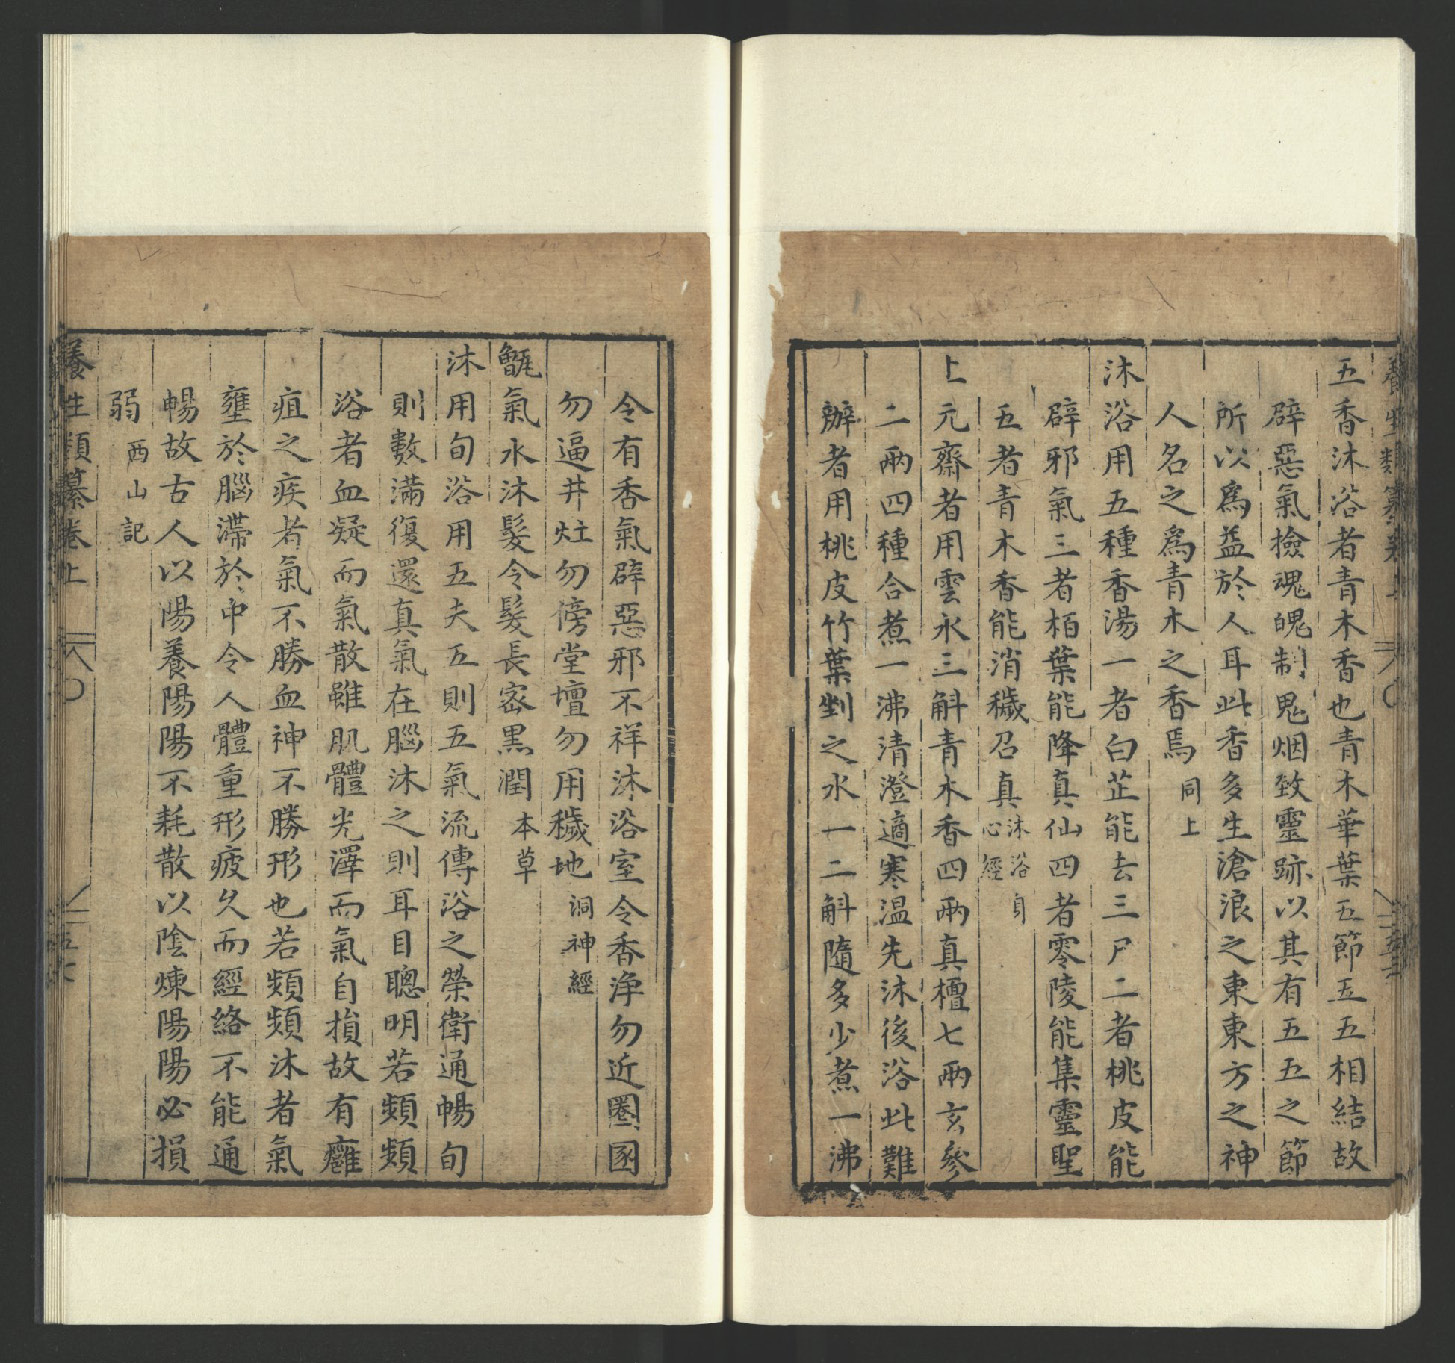 五香沐浴者青木香也青木華葉五節五五相結故
辟惡氣撿魂魄制鬼烟致靈跡以其有五五之節
所以為益於人耳此香多生滄浪之東東方之神
人名之為青木之香焉 同上
沐浴用五種香湯一者白芷能去三尸二者桃皮能
辟邪氣三者栢葉能降真仙四者零陵能集靈聖
五者青木香能消穢召真 沐浴身心經
上元齋者用雲水三斛青木香四兩真檀七兩玄參
二兩四種合煮一沸清澄適寒温先沐後浴此難
辦者用桃皮竹葉剉之水一二斛隨多少煮一沸
令有香氣辟惡邪不祥沐浴室令香淨勿近圂圂
勿逼井灶勿傍堂壇勿用穢地 洞神經
甑氣水沐髮令髮長密黑潤 本草
沐用旬浴用五夫五則五氣流傳浴之榮衛通暢旬
則數滿復還真氣在腦沐之則耳目聰明若頻頻
浴者血凝而氣散雖肌體光澤而氣自損故有癰
疽之疾者氣不勝血神不勝形也若頻頻沐者氣
壅於腦滯於中令人體重形疲久而經絡不能通
暢故古人以陽養陽陽不耗散以陰煉陽陽必損
弱 西山記
養生類纂卷上 五十六